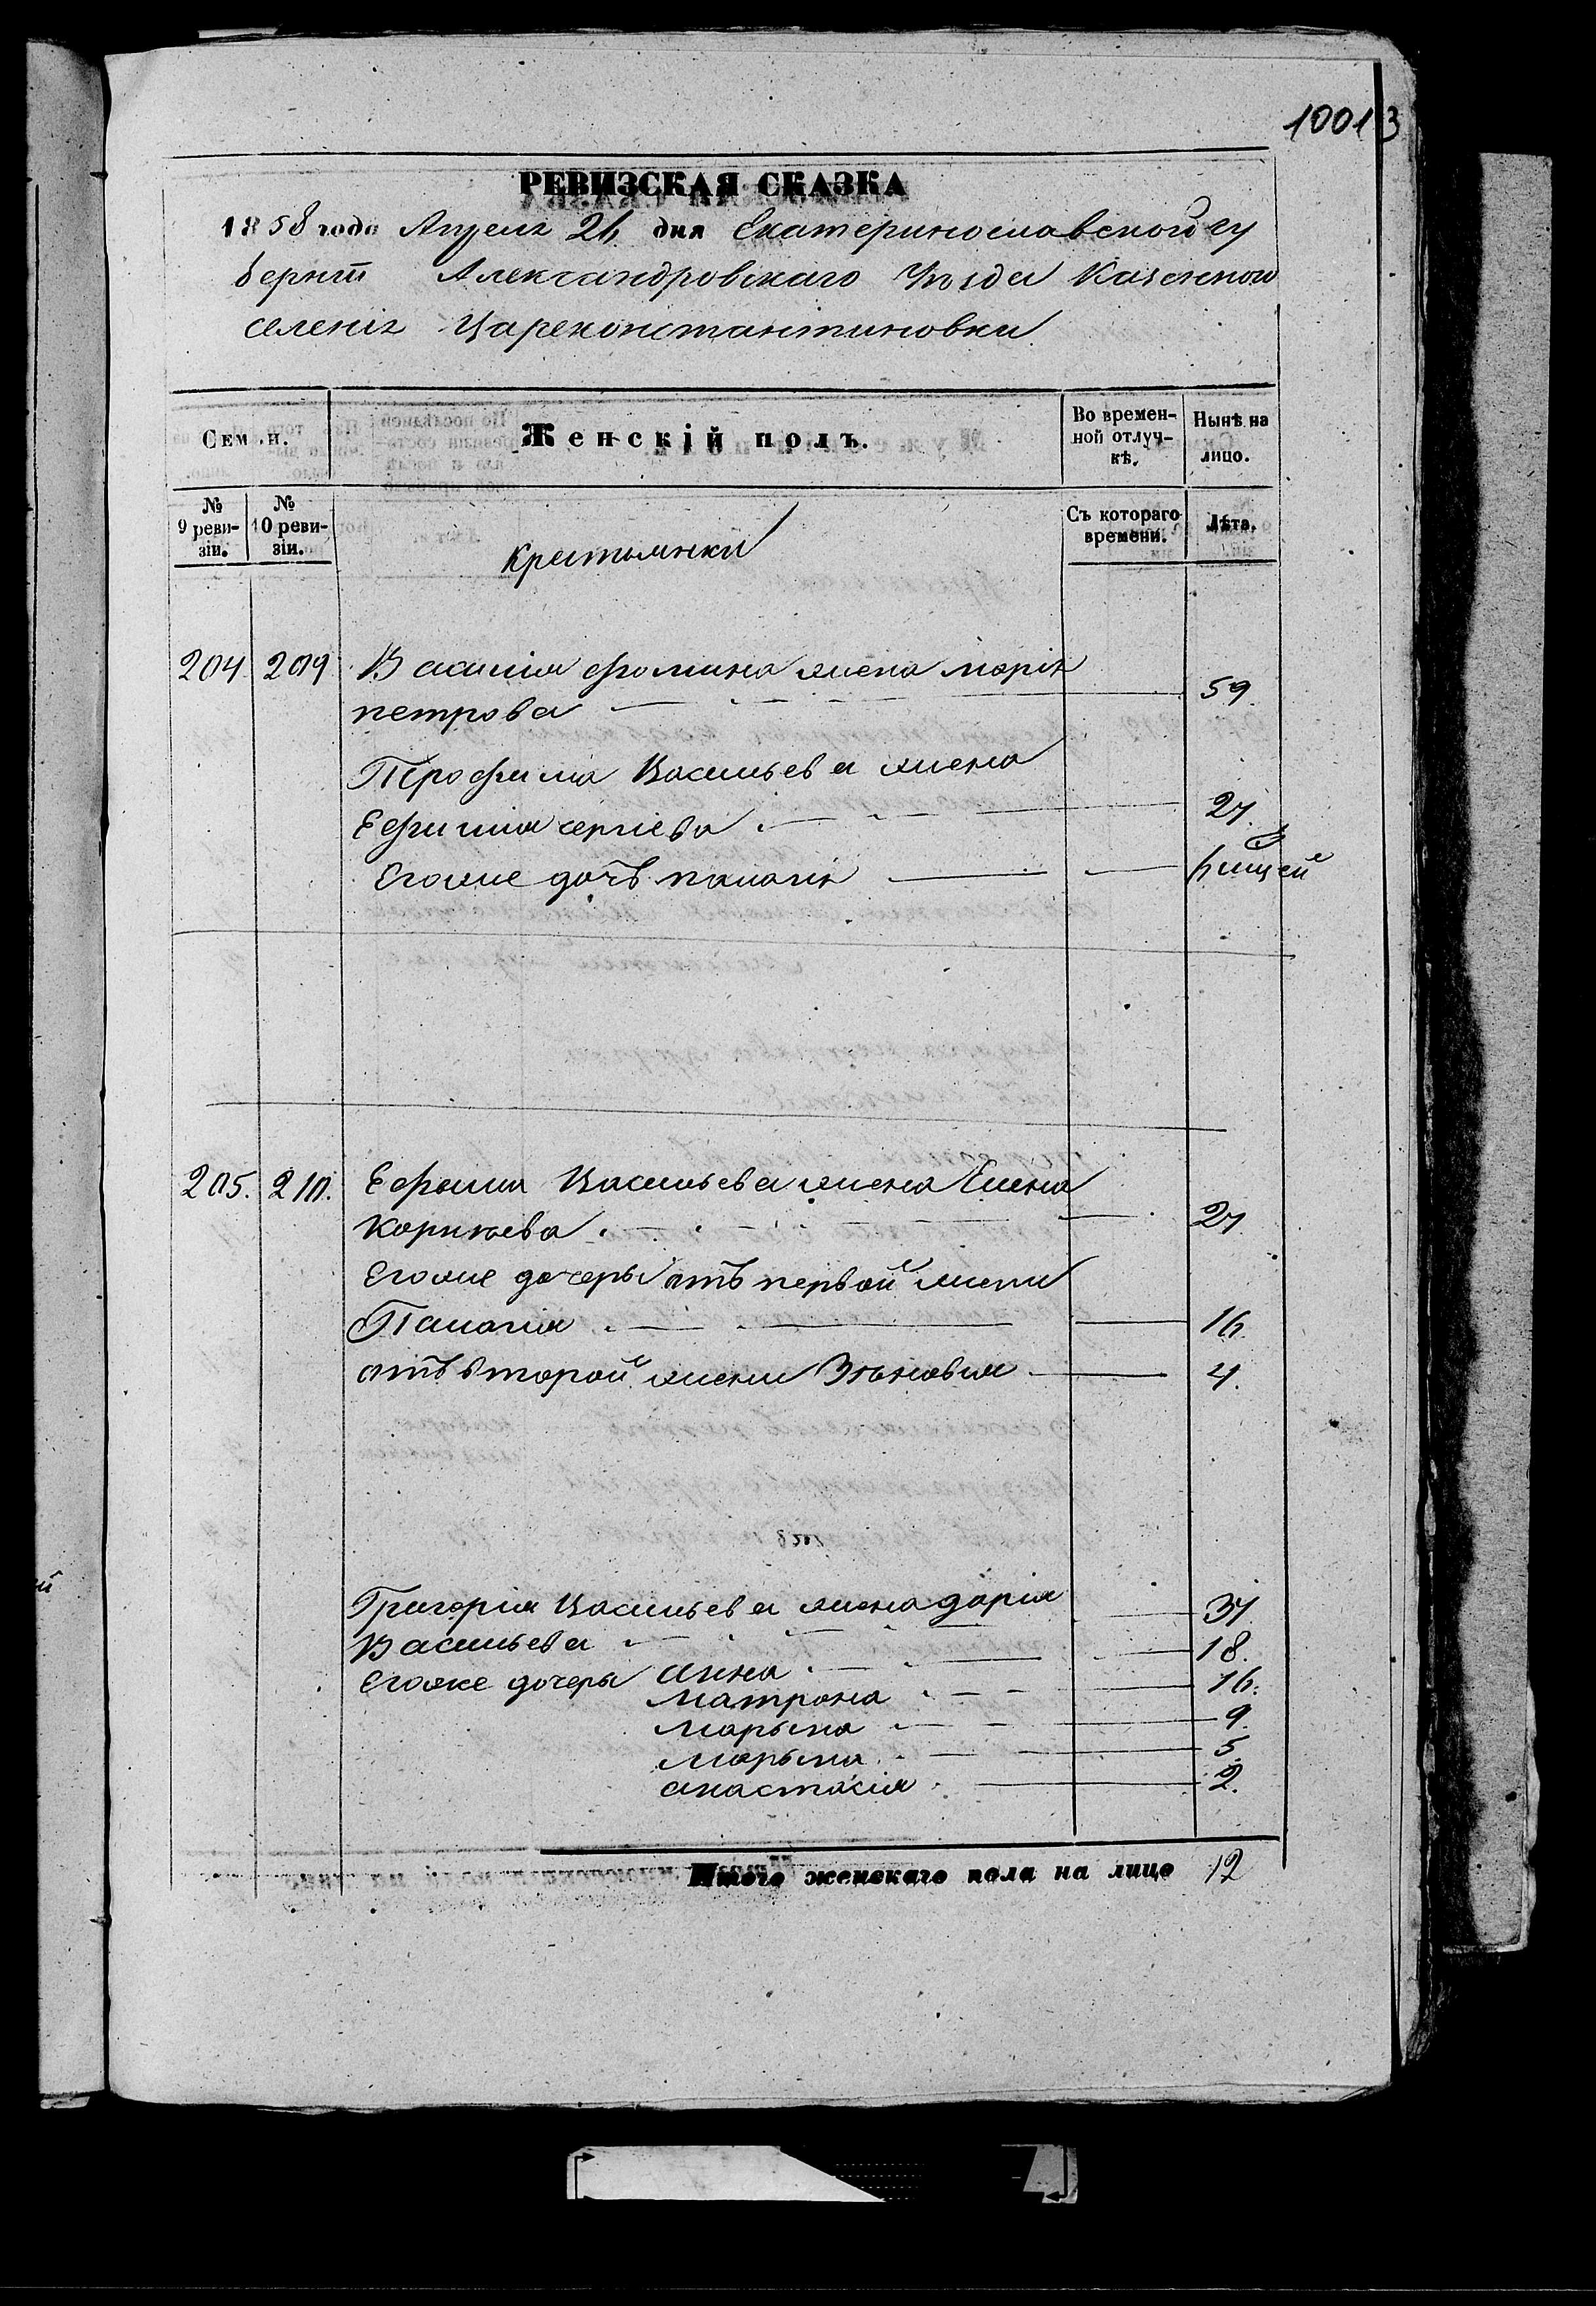 10013
РЕВИЗСКАЯ СКАЗКА
1858 года Апреля 26 дня Екатеринославской гу
берніи Александровскаго Уѣзда Казенного
селенія Цареконстантиновки
Семьи.
Женскій полъ.
Во времен-
ной отлуч-
кѣ.
Нынѣ на
лицо.
№
9 реви-
зіи.
№
10 реви-
зіи.
Крестьянки
Съ котораго
времени.
Лѣта.
204. 209. Василія Фомина жена марія
петрова 59.
Трофима Васильева жена
Ефимия сергіева 27.
Егоже дочь палагія 6 мцей
205. 210. Ефима Васильева жена Елена
Корнѣева 27
Егоже дочеры отъ первой жены
Палагія 16.
отъ второй жены Зѣновия 4.
Григория Васильева жена дария 37.
Васильева 18.
Егоже дочеры анна 16.
матрона 9.
марына 5.
марына 2.
анастасия
Итого женскаго пола на лицо 12